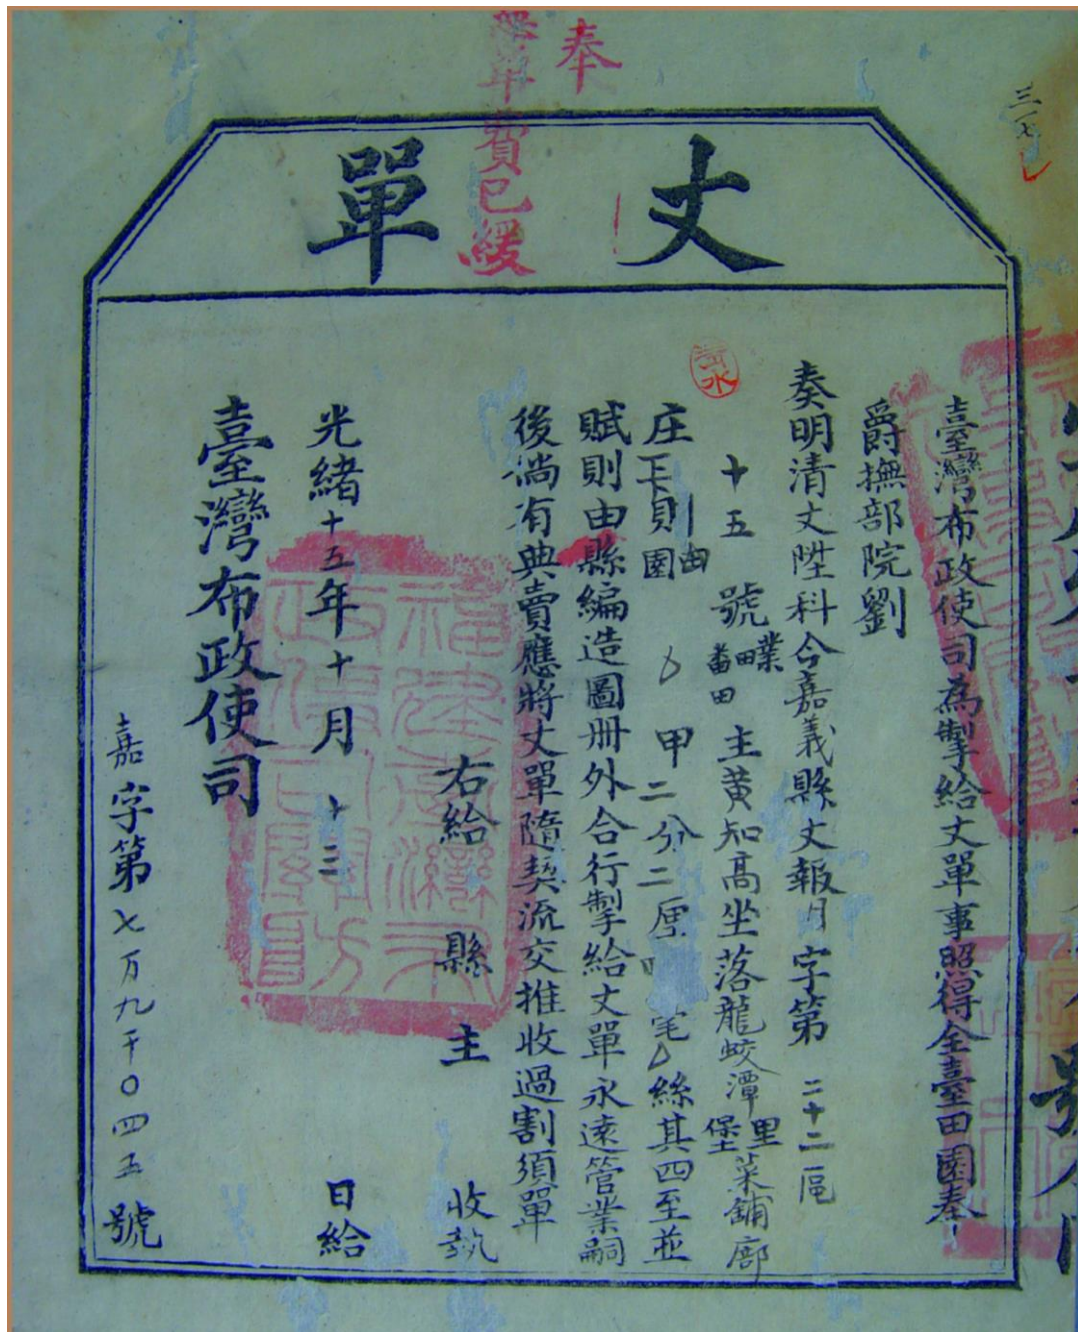 奉
單費已緩
丈單
臺灣布政使司為掣給丈單事照得全臺田園奉
爵撫部院劉
奏明清丈陞科今嘉義縣丈報月字第二十二區
十五號業田番田主黃知高坐落龍蛟潭里堡菜舖廍
庄下則田園甲二分二厘毫絲其四至並
賦則由縣編造圖冊外合行掣給丈單永遠管業嗣
後倘有典賣應將丈單隨契流交推收過割須單
右給縣主收執
光緒十五年十月十三日給
臺灣布政使司
嘉字第七万九千〇四五號